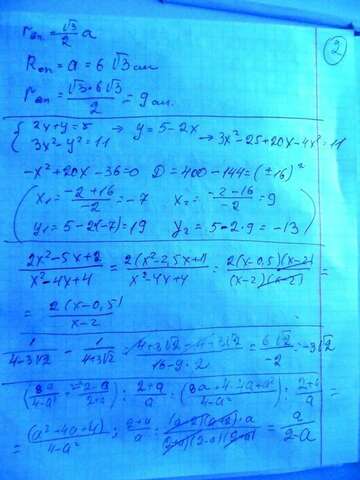 2
r оп = √3/2 a
R оп = a = 6√3 см
r оп = √3·6√3/2 = 9 см.
{ 2x+y=5 → y=5-2x
3x²-y²=11 → 3x²-25+20x-4x²=11
-x²+20x-36=0 D=400-144=(±16)²
x₁ = -2+16/-2 = -7 x₂ = -2-16/-2 = 9
y₁=5-2(-7)=19 y₂=5-2·9=-13
2x²-5x+2/x²-4x+4 = 2(x²-2,5x+1)/x²-4x+4 = 2(x-0,5)(x-2)/(x-2)(x-2) =
= 2(x-0,5)/x-2
1/4-3√2 - 1/4+3√2 = 4+3√2-4+3√2/16-9·2 = 6√2/-2 = -3√2
(8a/4-a² + 2-a/2+a) : 2+a/a = (8a+4-4a+a²/4-a²) : 2+a/a =
= (a²+4a+4)/4-a² : 2+a/a = a/2-a